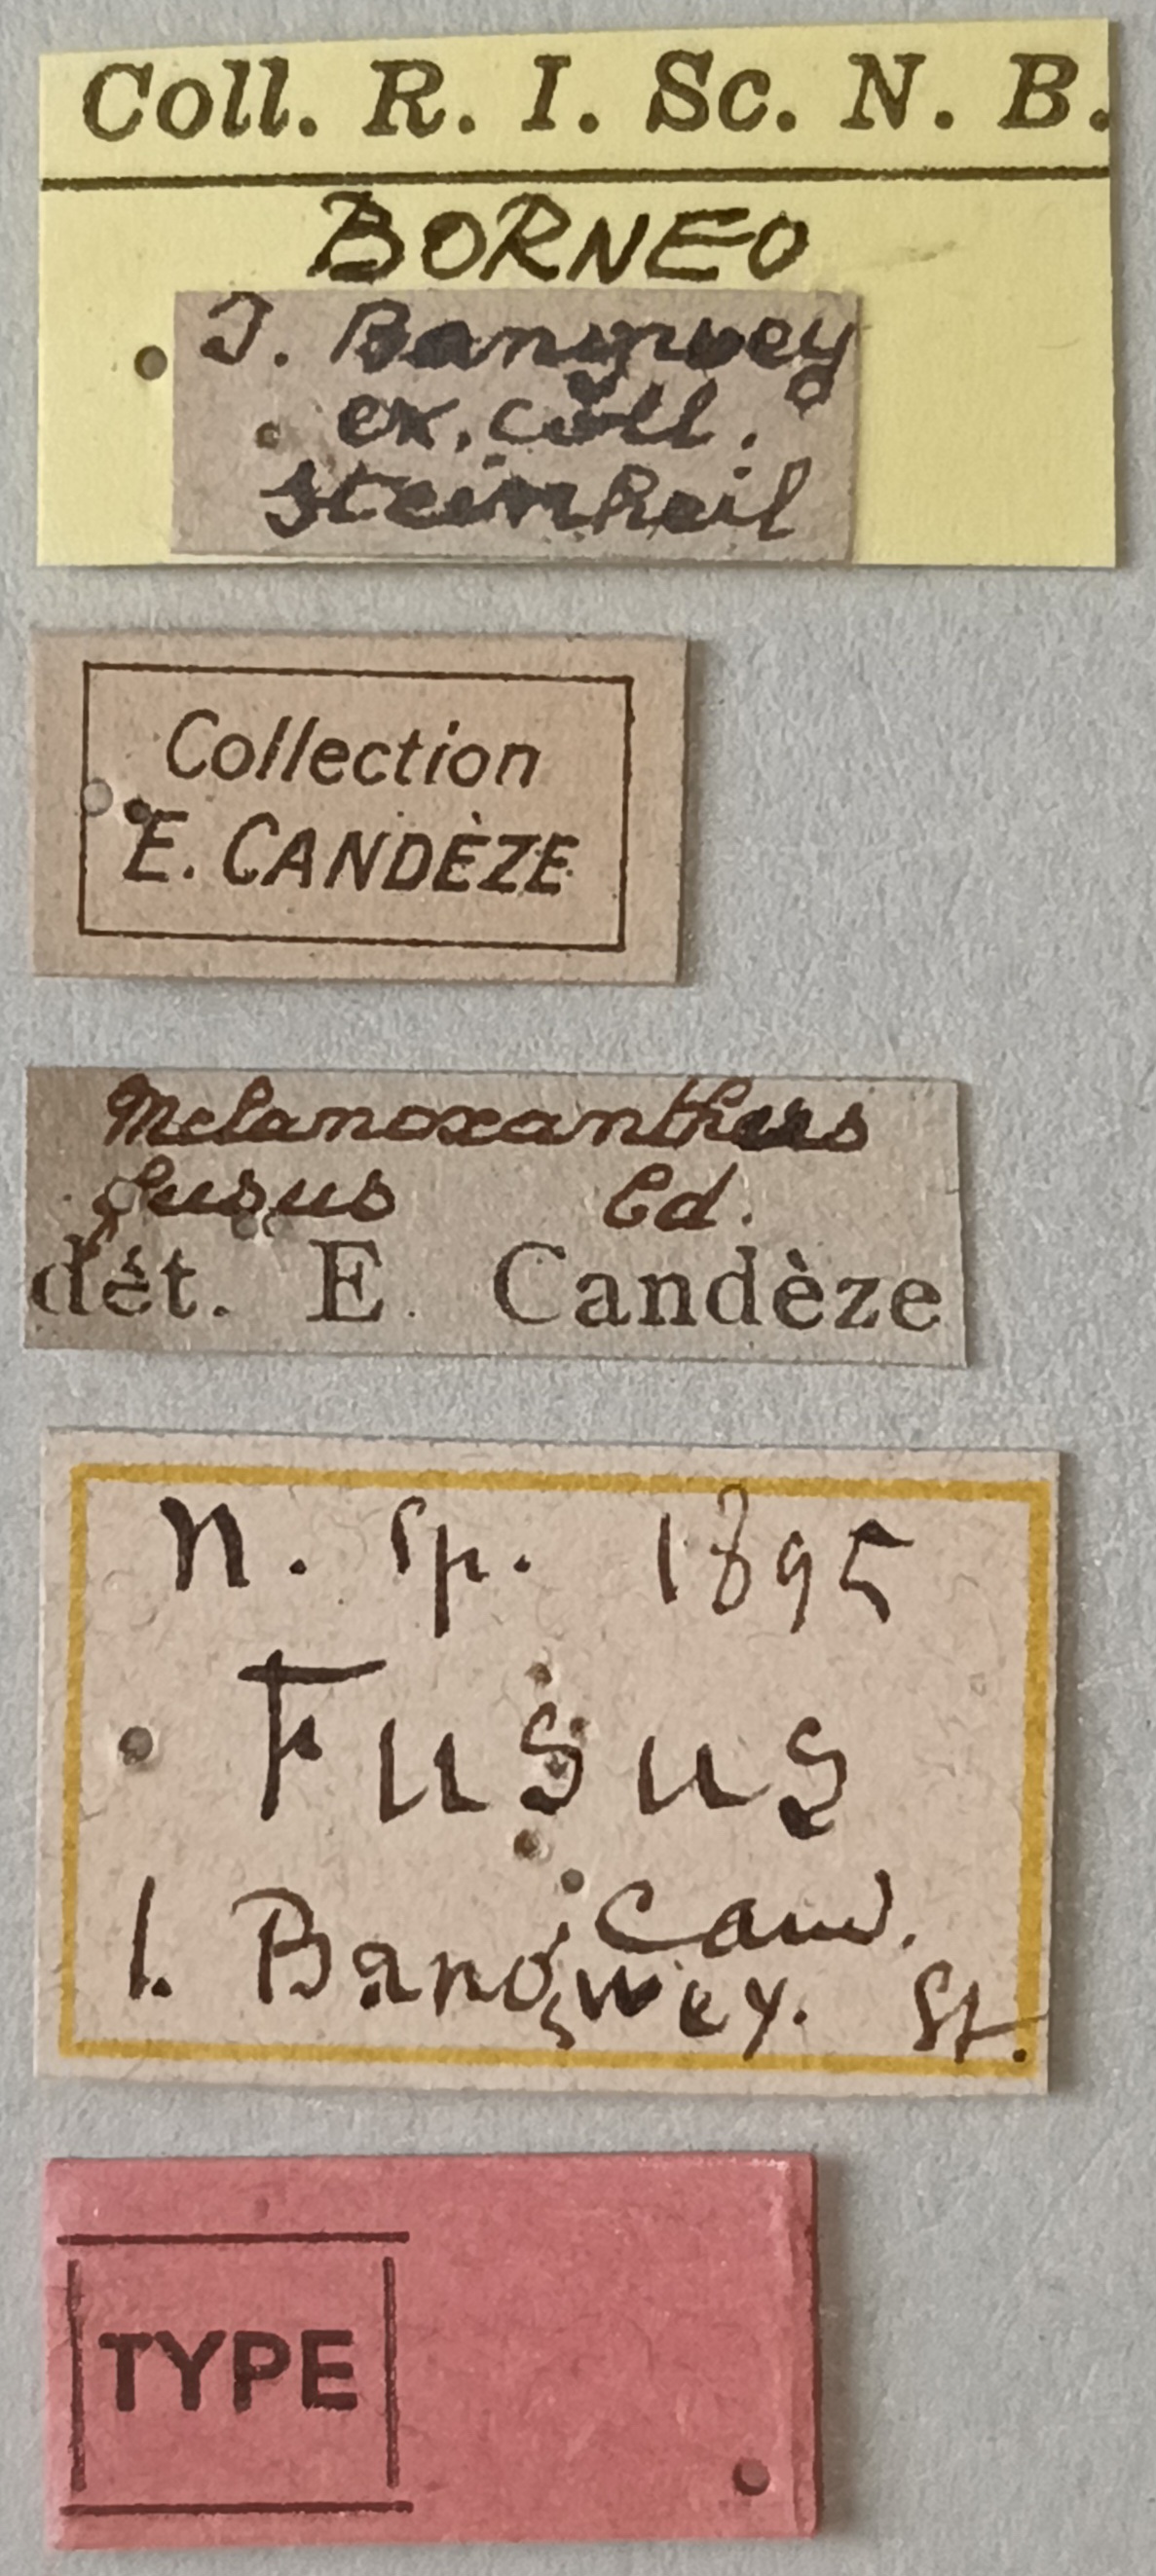 Coll. R. I. Sc. N. B.
BORNEO
I. Bangwey
ex. coll.
Steinheil
Collection
E. CANDÈZE
Melanoxanthus
fusus Cd.
dét. E. Candèze
n. sp. 1895
Fusus
Cand.
I. Bangwey. St.
TYPE